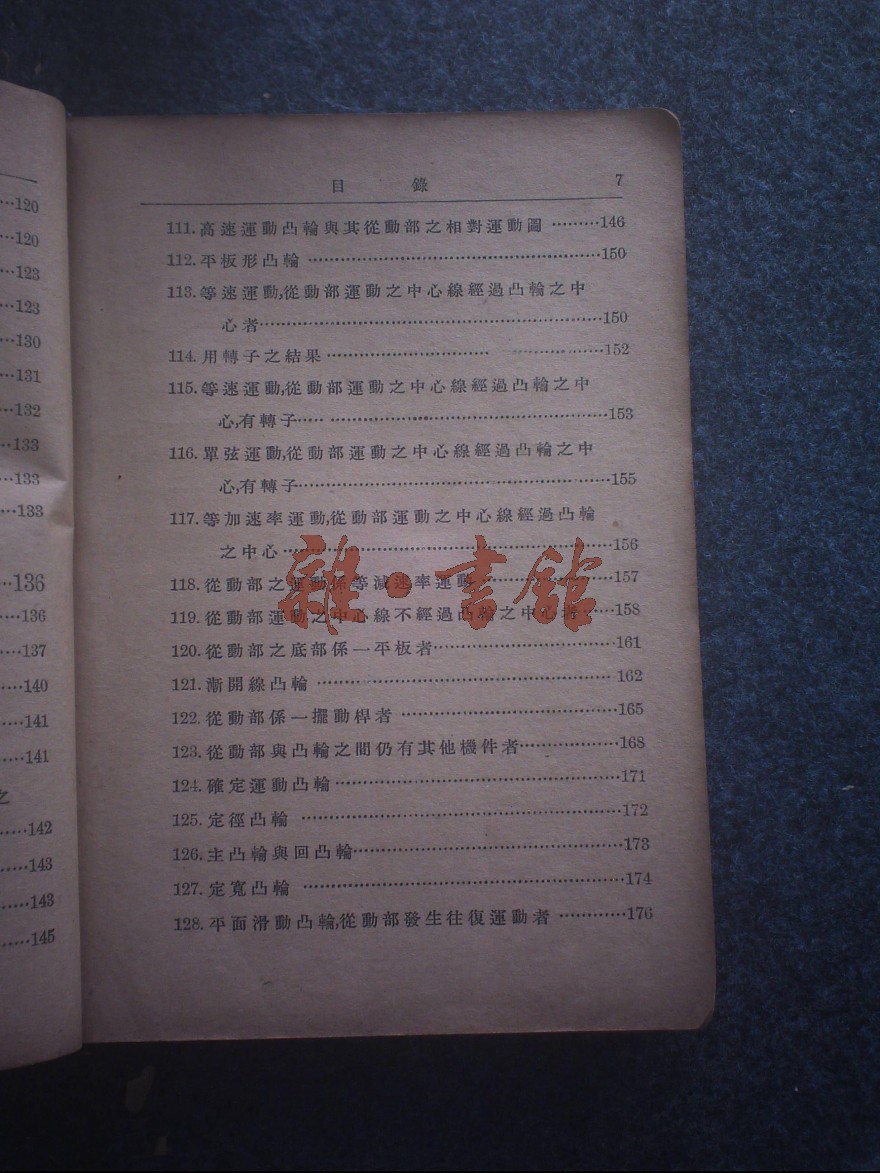 120
120
123
123
130
131
132
133
133
133
136
136
137
140
141
141
之
142
143
143
145
目 錄 7
111.高速運動凸輪與其從動部之相對運動圖 ………146
112.平板形凸輪 ………150
113.等速運動,從動部運動之中心線經過凸輪之中
心者………150
114.用轉子之結果 ………152
115.等速運動,從動部運動之中心線經過凸輪之中
心,有轉子………153
116.單弦運動,從動部運動之中心線經過凸輪之中
心,有轉子………155
117.等加速率運動,從動部運動之中心線經過凸輪
之中心………156
118.從動部之運動係等減速率運動………157
119.從動部運動之中心線不經過凸輪之中心者……158
120.從動部之底部係一平板者………161
121.漸開線凸輪 ………162
122.從動部係一擺動桿者 ………165
123.從動部與凸輪之間仍有其他機件者………168
124.確定運動凸輪………171
125.定徑凸輪 ………172
126.主凸輪與回凸輪………173
127.定寬凸輪 ………174
128.平面滑動凸輪,從動部發生往復運動者 ………176
雜·書館